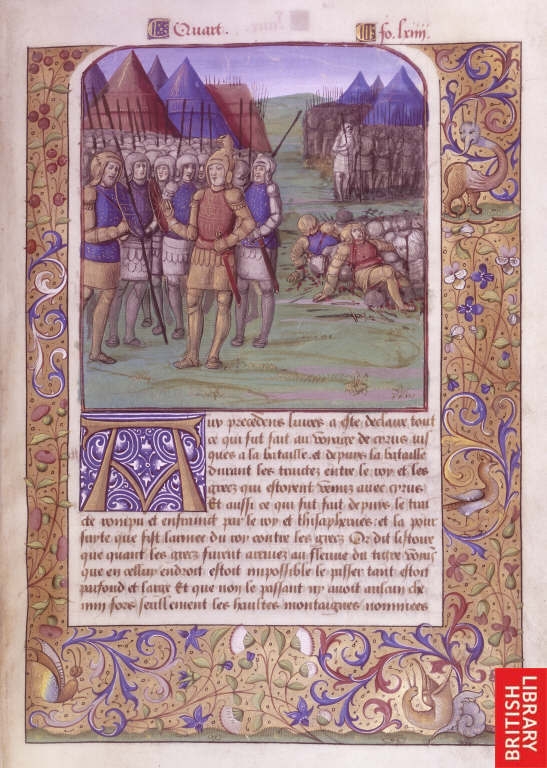 Quart. fo. lxiiii.
Auy precedens livres a este declaire tout
ce qui fut fait au voyage de cyrus jus
ques a la bataille et depuys la bataille
durant les traictez entre le roy et les
grecz qui estoient venuz avec cyrus
Et aussi ce qui fut fait depuys le trai
cte rompu et enfraint par le roy et thisaphernes: et la pour
suyte que fist larmee du roy contre les grecz Or dit listoire
que quant les grecz furent arrivez au fleuve du tigre
que en cellui endroit estoit impossible le passer tant estoit
parfond et large Et que non le passant ny avoit aulcun che
min fors seullement les haultes montaignes nommees
BRITISH
LIBRARY